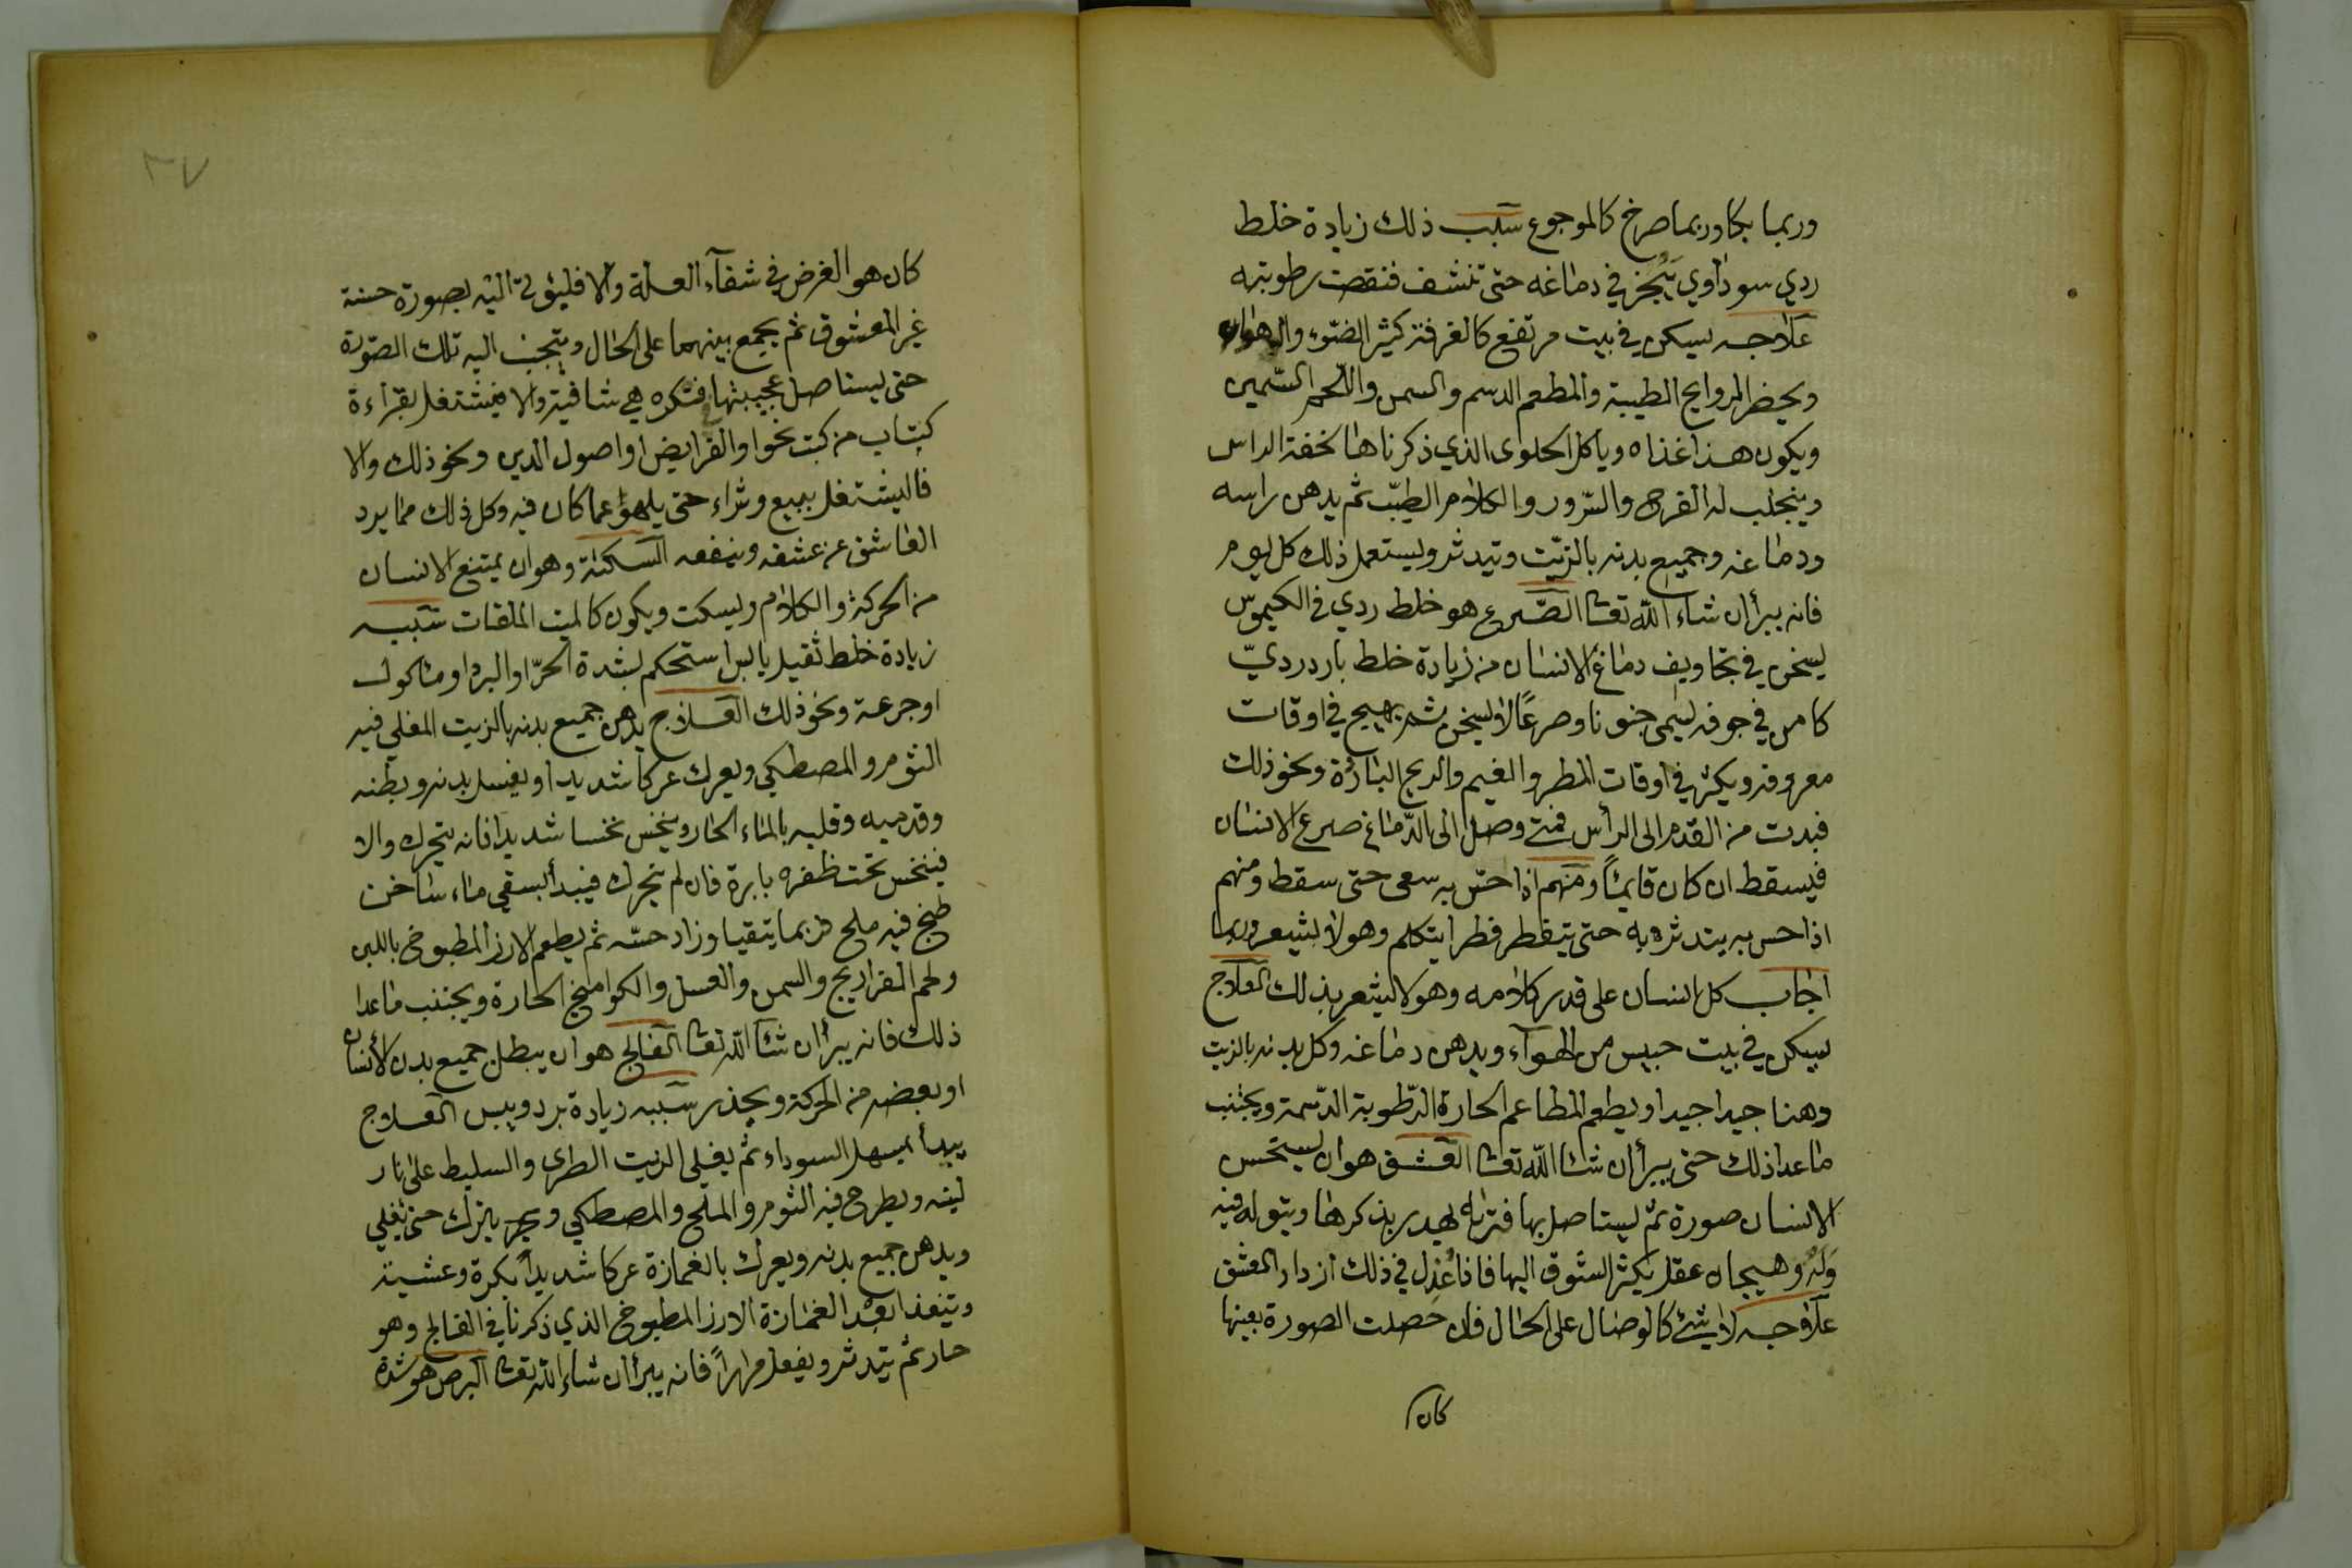 وربما بكا وربما صرخ كالموجوع سبب ذلك زيادة خلط
ردي سوداوي يبخر في دماغه حتى تنشف فنقصت رطوبته
علاجه يسكن في بيت مرتفع كالغرفة كثير الضوء والهواء
ويحضر الروايح الطيبة والمطعم الدسم والسمن واللحم السمين
ويكون هذا غذاه وياكل الحلوى الذي ذكرناها لخفة الراس
وينجلب له الفرح والسرور والكلام الطيب ثم يدهن راسه
ودماغه وجميع بدنه بالزيت ويتدثر ويستعمل ذلك كل يوم
فانه يبرأ ان شاء الله تعا الصرع هو خلط ردي في الكيموس
يسخن في تجاويف دماغ الانسان من زيادة خلط بارد ردي
كامن في جوفه ليسمى جنونا وصرعا لا يسخن ثم يهيج في اوقات
معروفه ويكثر في اوقات المطر والغيم والريح الباردة ونحو ذلك
فبدت من القدم الى الرأس فمتى وصل الى الدماغ صرع الانسان
فيسقط ان كان قايما ومنهم اذا حس به سعى حتى سقط ومنهم
اذا حس به يتدثر به حتى يتقطر قطرا يتكلم وهو لا يشعر وربما
اجاب كل انسان على قدر كلامه وهو لا يشعر بذلك العلاج
يسكن في بيت حبيس من الهواء ويدهن دماغه وكل بدنه بالزيت
وهنا جيدا جيدا ويطعم المطاعم الحارة الرطوبة الدسمة ويجتنب
ماعدا ذلك حتى يبرأ ان شا الله تعا العشق هو ان يستحسن
الانسان صورة ثم يستاصل بها فتراه يهدر بذكرها ويتوله فيه
وله وهيجان عقل يكثر الشوق اليها فاذا عُذِل في ذلك ازداد العشق
علاجه لا شئ كالوصال على الحال فان حصلت الصورة بعينها
كان
٣٧
كان هو الغرض في شفاء العلة والا فليؤلة اليه بصورة حسنة
غير المعشوق ثم يجمع بينهما على الحال ويتجنب اليه تلك الصورة
حتى يستاصل بها فتكره هي شافية والا فيشتغل بقراءة
كتاب من كتب نحوا والفرايض او اصول الدين ونحو ذلك والا
فاليشتغل ببيع وشراء حتى يلهو عما كان فيه وكل ذلك مما يرد
العاشق عن عشقه وينفعه السكتة وهو ان يمتنع الانسان
من الحركة والكلام ويسكت ويكون كالميت الملقات سببه
زيادة خلط ثقيل يابس استحكم بشدة الحر او البرد او ماكول
او جرعة ونحو ذلك العلاج يدهن جميع بدنه بالزيت المغلي فيه
الثوم والمصطكي ويعرك عركا شديدا ويغسل بدنه وبطنه
وقدميه وقلبه بالماء الحار وينخس نخسا شديدا فانه يتحرك والا
فينخس تحت ظفره بابرة فان لم يتحرك فيبدأ بسقي ماء ساخن
طبخ فيه ملح فربما يتقيا وزاد حسه ثم يطعم الارز المطبوخ باللبن
ولحم الفراريج والسمن والعسل والكوامخ الحارة ويجتنب ماعدا
ذلك فانه يبرأ ان شا الله تعا الفالج هو ان يبطل جميع بدن الأنسان
او بعضه من الحركة ويخدر سببه زيادة برد ويبس العلاج
يبدأ بمسهل السوداء ثم يغلي الزيت الطرى والسليط على نار
لينه ويطرح فيه الثوم والملح والمصطكي ويترك حتى يغلي
ويدهن جميع بدنه ويعرك بالغمازة عركا شديدا بكرة وعشية
ويتغذا بعد الغمازة الارز المطبوخ الذي ذكرنا في الفالج وهو
حار ثم يتدثر ويفعل مرارا فانه يبرأ ان شاء الله تعا البرص هو شدة